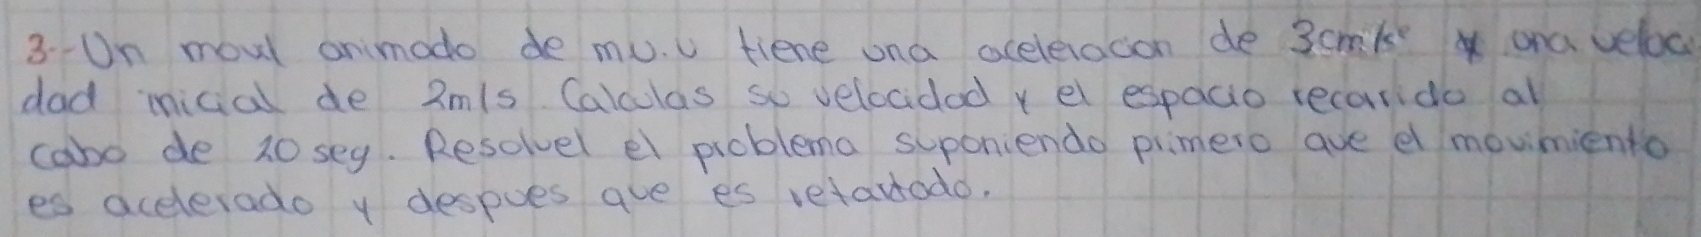 3.-Un movil animado de m.u.v tiene una aceleracion de 3cm/s² y una veloci
dad inicial de 2m/s. Calculas su velocidad y el espacio recorrido al
cabo de 10 seg. Resolver el problema suponiendo primero que el movimiento
es acelerado y despues que es retardado.